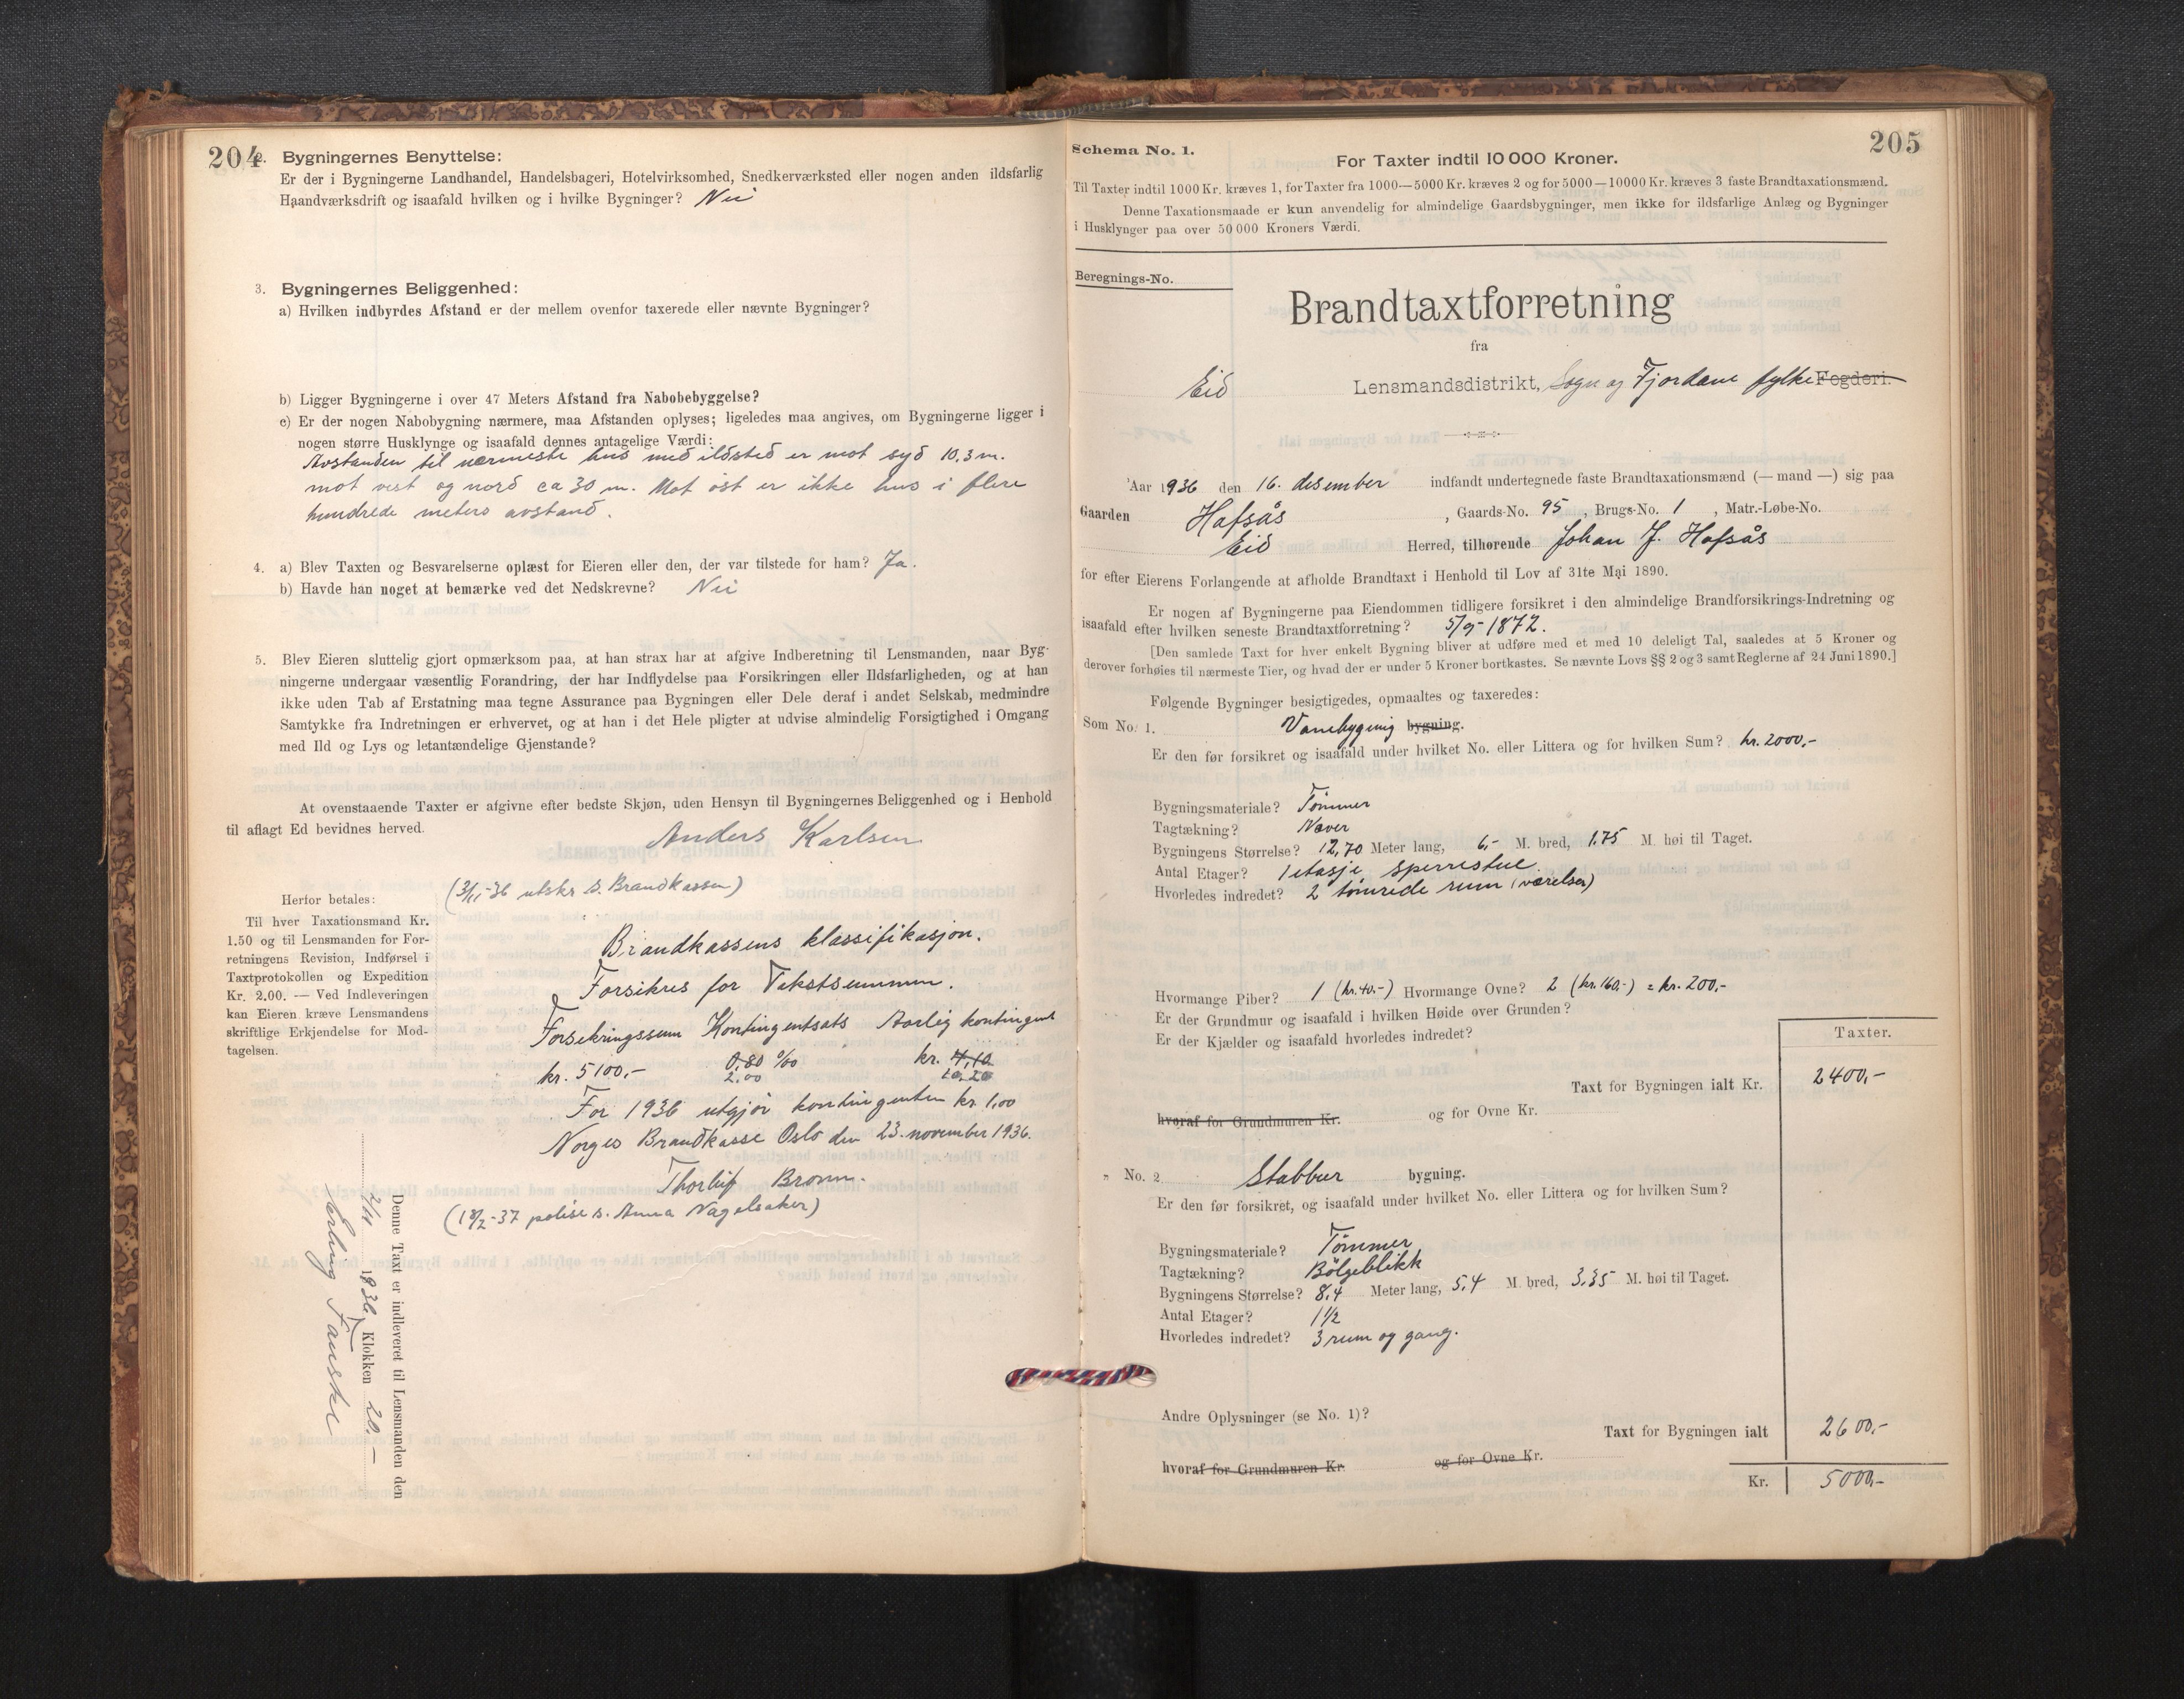 204
2. Bygningernes Benyttelse:
Er der i Bygningerne Landhandel, Handelsbageri, Hotelvirksomhed, Snedkerværksted eller nogen anden ildsfarlig
Haandværksdrift og isaafald hvilken og i hvilke Bygninger? Nei
3. Bygningernes Beliggenhed:
a) Hvilken indbyrdes Afstand er der mellem ovenfor taxerede eller nævnte Bygninger?
b) Ligger Bygningerne i over 47 Meters Afstand fra Nabobebyggelse?
c) Er der nogen Nabobygning nærmere, maa Afstanden oplyses; ligeledes maa angives, om Bygningerne ligger i
nogen større Husklynge og isaafald dennes antagelige Værdi:
Avstanden til nærmeste hus med ildsted er mot syd 10.3 m.
mot vest og nord ca 30 m. Mot øst er ikke hus i flere
hundrede meters avstand.
4. a) Blev Taxten og Besvarelserne oplæst for Eieren eller den, der var tilstede for ham? Ja.
b) Havde han noget at bemærke ved det Nedskrevne? Nei
5. Blev Eieren sluttelig gjort opmærksom paa, at han strax har at afgive Indberetning til Lensmanden, naar Byg-
ningerne undergaar væsentlig Forandring, der har Indflydelse paa Forsikringen eller Ildsfarligheden, og at han
ikke uden Tab af Erstatning maa tegne Assurance paa Bygningen eller Dele deraf i andet Selskab, medmindre
Samtykke fra Indretningen er erhvervet, og at han i det Hele pligter at udvise almindelig Forsigtighed i Omgang
med Ild og Lys og letantændelige Gjenstande?
At ovenstaaende Taxter er afgivne efter bedste Skjøn, uden Hensyn til Bygningernes Beliggenhed og i Henhold
til aflagt Ed bevidnes herved.
Anders Karlsen
Herfor betales:
Til hver Taxationsmand Kr.
1.50 og til Lensmanden for For-
retningens Revision, Indførsel i
Taxtprotokollen og Expedition
Kr. 2.00. — Ved Indleveringen
kan Eieren kræve Lensmandens
skriftlige Erkjendelse for Mod-
tagelsen.
(3/11-36 utskr s. Brandkassen)
Brandkassens klassifikasjon.
Forsikres for Takstsummen.
Forsikringssum Kontingentsats Aarlig kontingent
kr. 5100,- 0,80 ‰ kr. 4,10
2.00 10.20
For 1936 utgjør kontingenten kr 1,00
Norges Brandkasse Oslo den 23. november 1936.
Thorleif Bronn.
(18/2-37 polise s. Anna Nagelsaker)
Denne Taxt er indleveret til Lensmanden den
2/11 1936 Klokken 20.-
Erling Fauske
205
Schema No. 1.
For Taxter indtil 10 000 Kroner.
Til Taxter indtil 1000 Kr. kræves 1, for Taxter fra 1000—5000 Kr. kræves 2 og for 5000—10000 Kr. kræves 3 faste Brandtaxationsmænd.
Denne Taxationsmaade er kun anvendelig for almindelige Gaardsbygninger, men ikke for ildsfarlige Anlæg og Bygninger
i Husklynger paa over 50 000 Kroners Værdi.
Beregnings-No.
Brandtaxtforretning
fra
Eid Lensmandsdistrikt, Sogn og Fjordane fylke Fogderi.
Aar 1936 den 16. desember indfandt undertegnede faste Brandtaxationsmænd (— mand —) sig paa
Gaarden Hafsås, Gaards-No. 95, Brugs-No. 1, Matr.-Løbe-No.
Eid Herred, tilhørende Johan J. Hafsås
for efter Eierens Forlangende at afholde Brandtaxt i Henhold til Lov af 31te Mai 1890.
Er nogen af Bygningerne paa Eiendommen tidligere forsikret i den almindelige Brandforsikrings-Indretning og
isaafald efter hvilken seneste Brandtaxtforretning? 5/9-1872.
[Den samlede Taxt for hver enkelt Bygning bliver at udføre med et med 10 deleligt Tal, saaledes at 5 Kroner og
derover forhøies til nærmeste Tier, og hvad der er under 5 Kroner bortkastes. Se nævnte Lovs §§ 2 og 3 samt Reglerne af 24 Juni 1890.]
Følgende Bygninger besigtigedes, opmaaltes og taxeredes:
Som No. 1. Vånebygnig bygning.
Er den før forsikret og isaafald under hvilket No. eller Littera og for hvilken Sum? kr. 2000,-
Bygningsmateriale? Tømmer
Tagtækning? Næver
Bygningens Størrelse? 12,70 Meter lang, 6,- M. bred, 1.75 M. høi til Taget.
Antal Etager? 1 etasje sperrestue
Hvorledes indredet? 2 tømrede rum (værelser)
Hvormange Piber? 1 (kr. 40.-) Hvormange Ovne? 2 (kr. 160,-) = kr. 200,-
Er der Grundmur og isaafald i hvilken Høide over Grunden?
Er der Kjælder og isaafald hvorledes indredet?
Taxter.
Taxt for Bygningen ialt Kr. 2400,-
hvoraf for Grundmuren Kr. og for Ovne Kr.
" No. 2 Stabbur bygning.
Er den før forsikret, og isaafald under hvilket No. eller Littera og for hvilken Sum?
Bygningsmateriale? Tømmer
Tagtækning? Bølgeblikk
Bygningens Størrelse? 8,4 Meter lang, 5,4 M. bred, 3,35 M. høi til Taget.
Antal Etager? 1 1/2
Hvorledes indredet? 3 rum og gang.
Andre Oplysninger (se No. 1)?
Taxt for Bygningen ialt 2600,-
hvoraf for Grundmuren Kr. og for Ovne Kr.
Kr. 5000,-